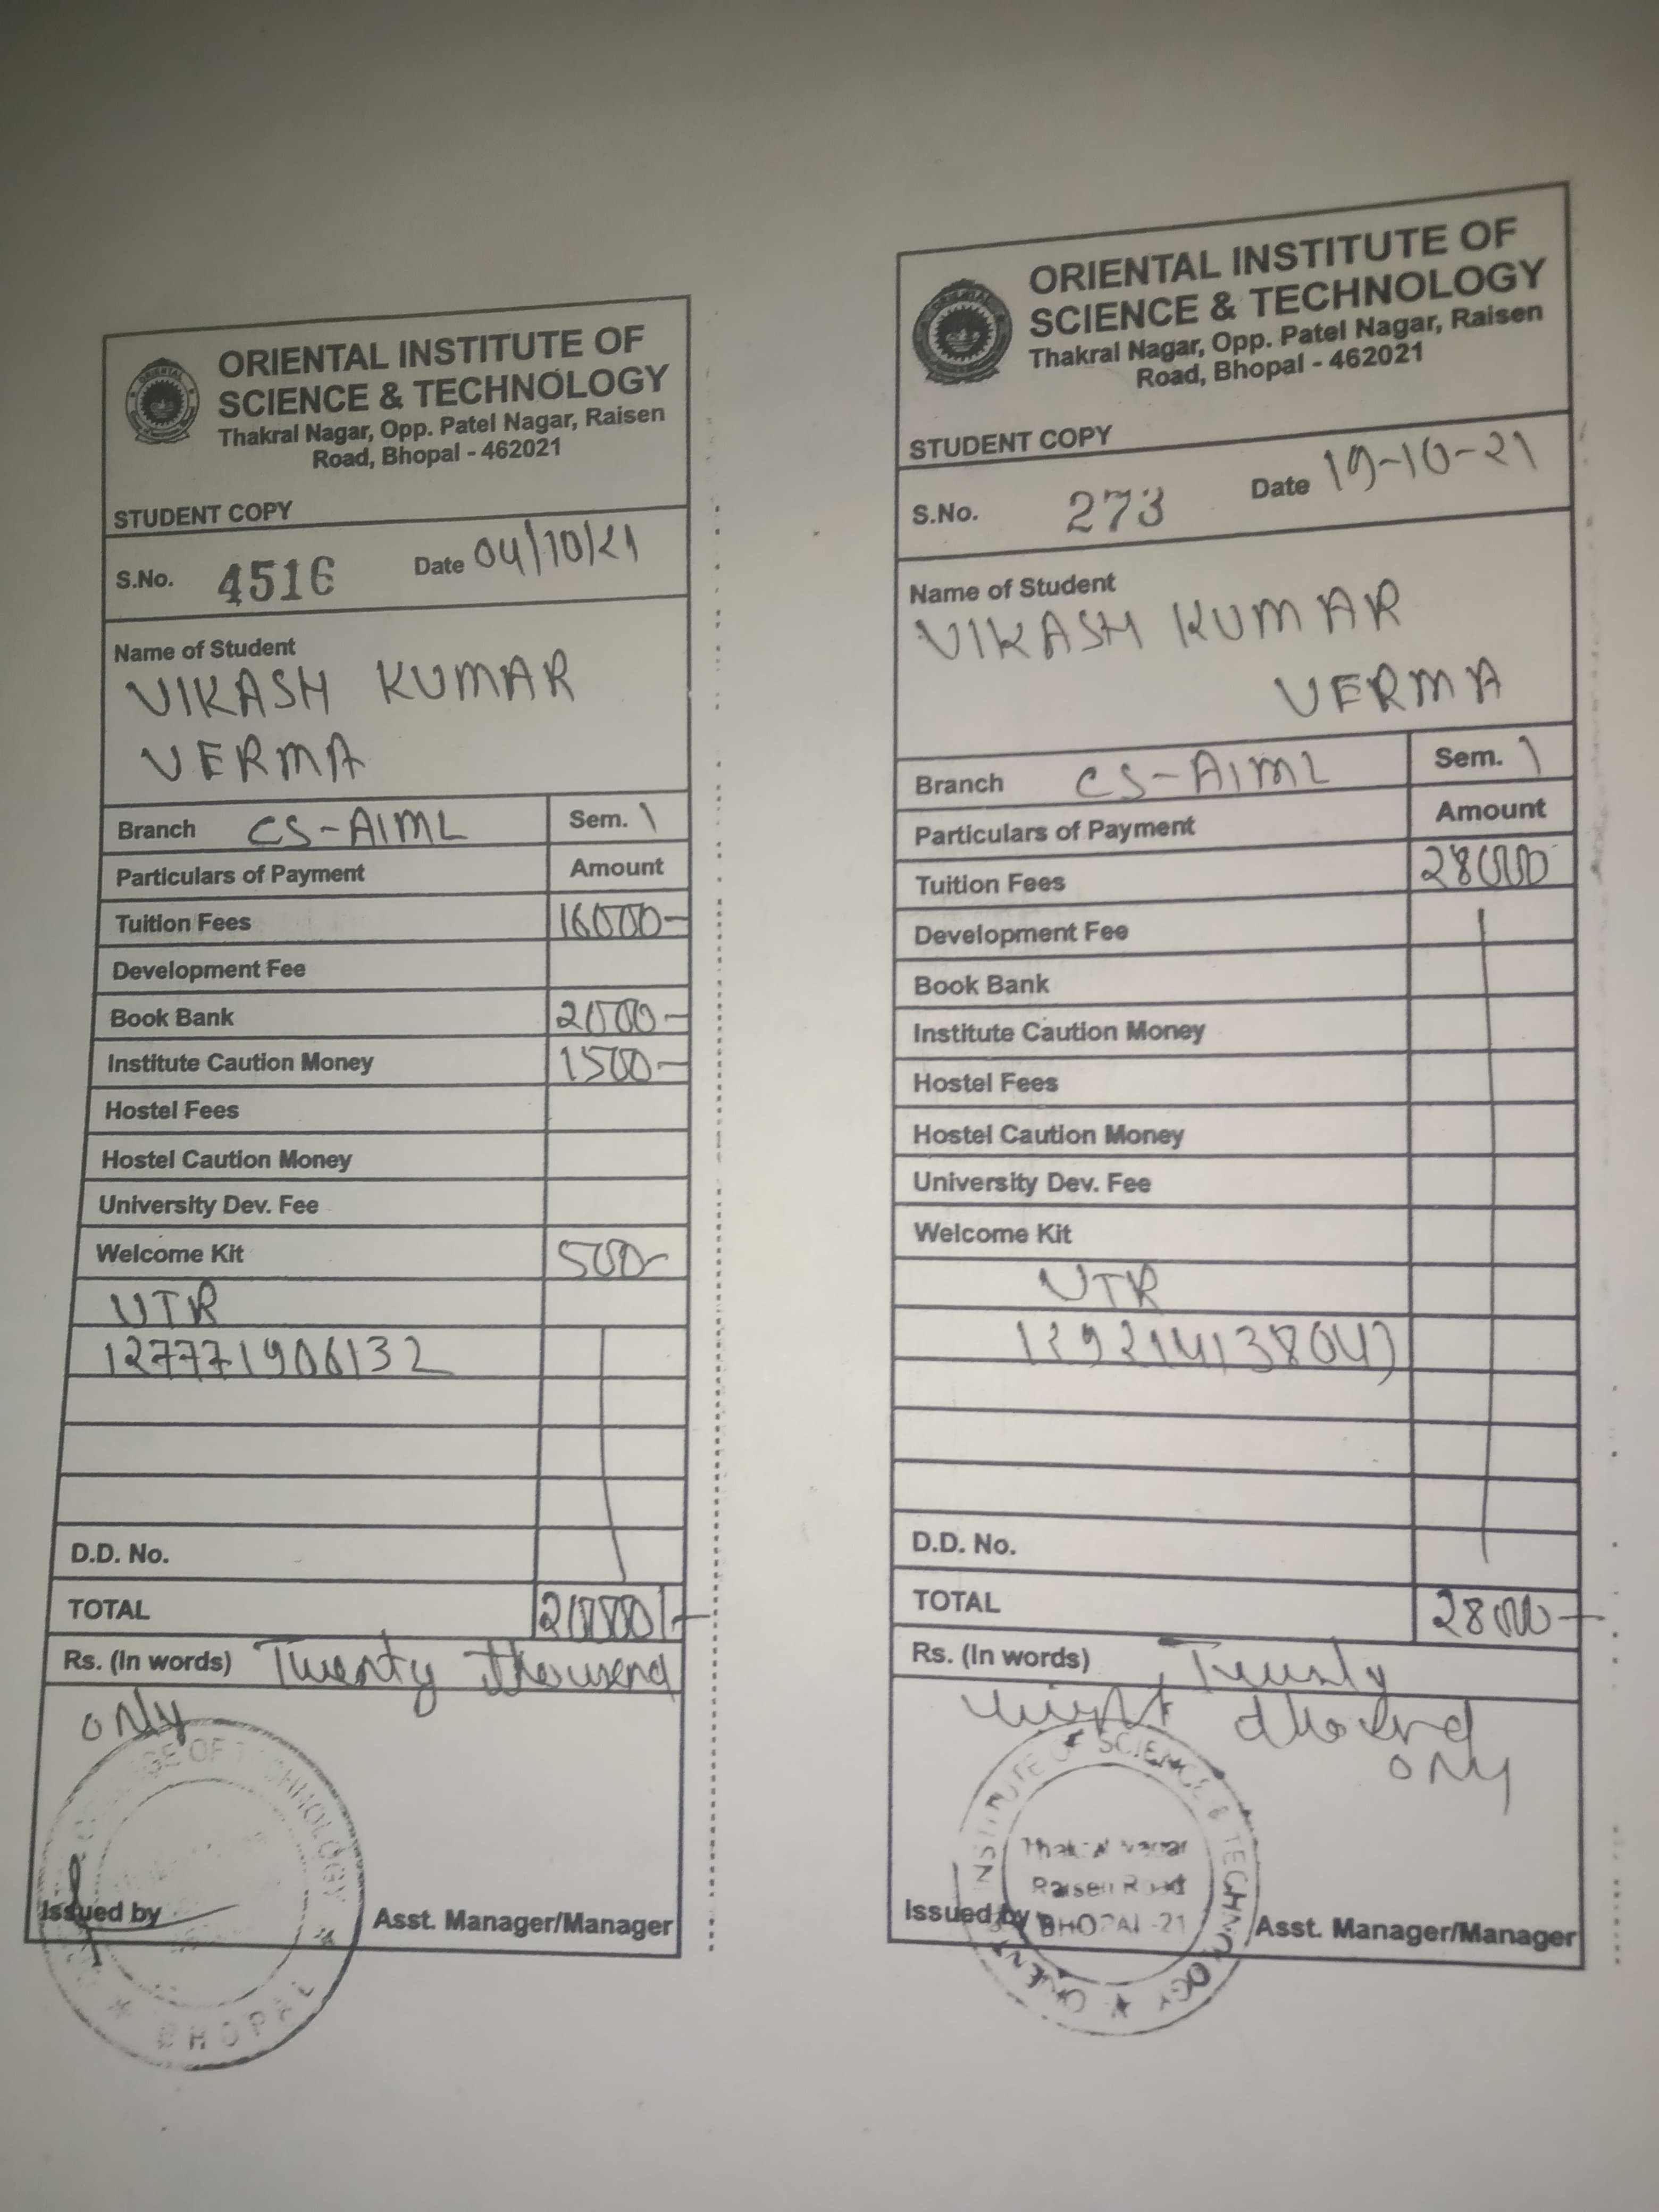 ORIENTAL INSTITUTE OF
SCIENCE & TECHNOLOGY
Thakral Nagar, Opp. Patel Nagar, Raisen
Road, Bhopal - 462021
STUDENT COPY
S.No. 4516 Date 04/10/21
Name of Student
VIKASH KUMAR
VERMA
Branch CS-AIML Sem. 1
Particulars of Payment Amount
Tuition Fees 16000-
Development Fee
Book Bank 2000-
Institute Caution Money 1500-
Hostel Fees
Hostel Caution Money
University Dev. Fee
Welcome Kit 500-
UTR
127771906132
D.D. No.
TOTAL 20000/-
Rs. (In words) Twenty thousend
only
COLLEGE OF TECHNOLOGY
BHOPAL
Issued by Asst. Manager/Manager
ORIENTAL INSTITUTE OF
SCIENCE & TECHNOLOGY
Thakral Nagar, Opp. Patel Nagar, Raisen
Road, Bhopal - 462021
STUDENT COPY
S.No. 273 Date 19-10-21
Name of Student
VIKASH KUMAR
VERMA
Branch CS-AIML Sem. 1
Particulars of Payment Amount
Tuition Fees 28000
Development Fee
Book Bank
Institute Caution Money
Hostel Fees
Hostel Caution Money
University Dev. Fee
Welcome Kit
UTR
D.D. No.
TOTAL 28000-
Rs. (In words) Twenty
only
ORIENTAL INSTITUTE OF SCIENCE & TECHNOLOGY
Thakral Nagar
Raisen Road
BHOPAL-21
Issued by Asst. Manager/Manager